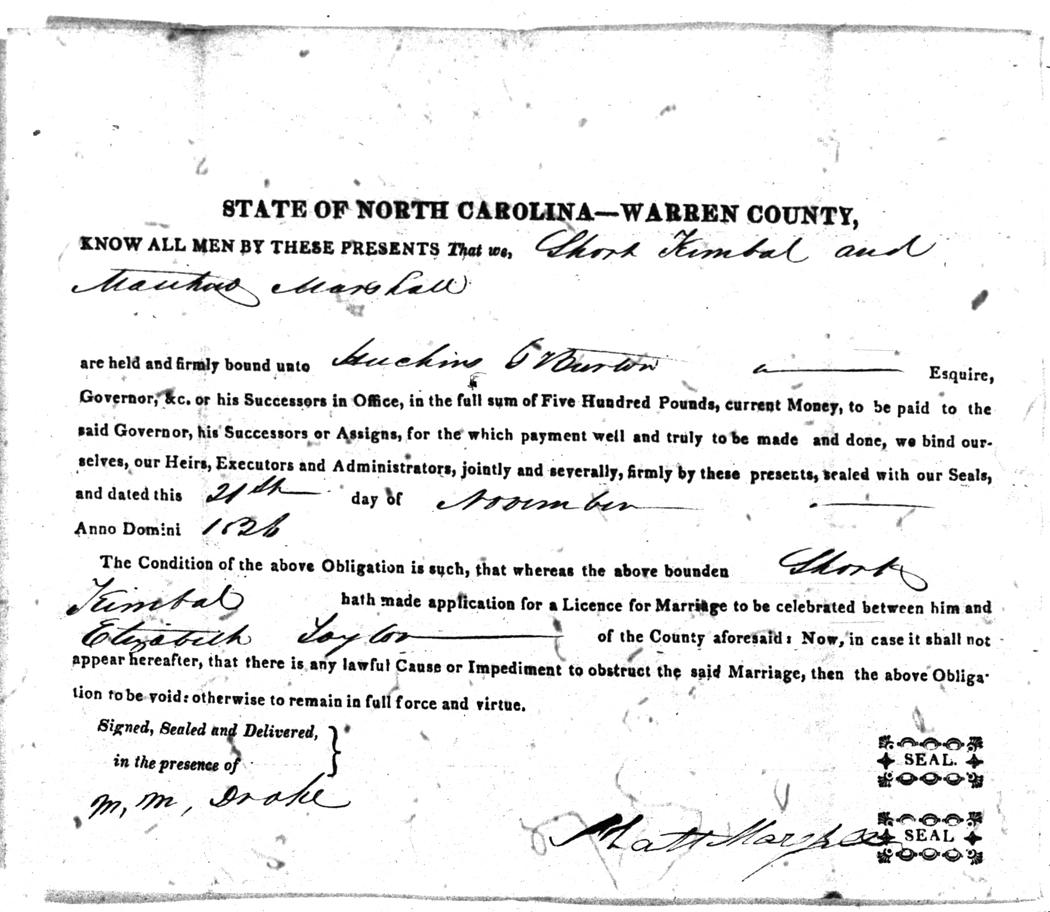 STATE OF NORTH CAROLINA—WARREN COUNTY,
KNOW ALL MEN BY THESE PRESENTS That we, Short Kimbal and
Matthew Marshall
are held and firmly bound unto Hutchins G Burton Esquire,
Governor, &c. or his Successors in Office, in the full sum of Five Hundred Pounds, current Money, to be paid to the
said Governor, his Successors or Assigns, for the which payment well and truly to be made and done, we bind our-
selves, our Heirs, Executors and Administrators, jointly and severally, firmly by these presents, sealed with our Seals,
and dated this 21st day of November
Anno Domini 1826
The Condition of the above Obligation is such, that whereas the above bounden Short
Kimbal hath made application for a Licence for Marriage to be celebrated between him and
Elizabeth of the County aforesaid: Now, in case it shall not
appear hereafter, that there is any lawful Cause or Impediment to obstruct the said Marriage, then the above Obliga-
tion to be void: otherwise to remain in full force and virtue.
Signed, Sealed and Delivered,
in the presence of
M, M, Drake
SEAL.
Matt Marshall SEAL